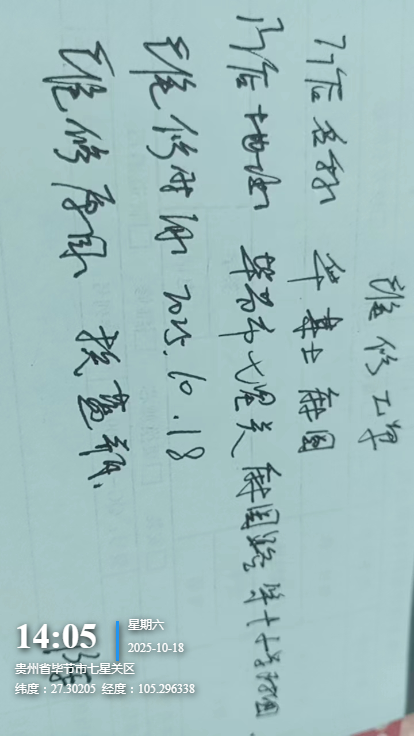 维修工单
门店名称 华莱士 麻园
门店地址 毕节市七星关 麻园路
维修时间 2025.10.18
维修原因 换
14:05
星期六
2025-10-18
贵州省毕节市七星关区
纬度：27.30205 经度：105.296338